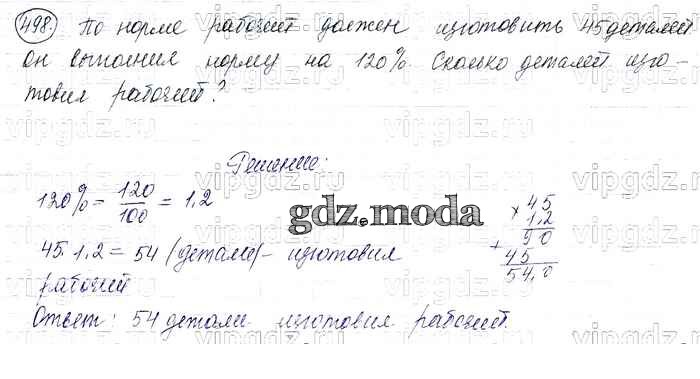 498. По норме рабочий должен изготовить 45 деталей
он выполнил норму на 120%. Сколько деталей изго-
товил рабочий?
Решение:
120% = 120/100 = 1,2
45·1,2 = 54 (детали) - изготовил
рабочий
× 45
1,2
+ 90
45
54,0
Ответ: 54 детали изготовил рабочий.
gdz.moda
vipgdz.ru